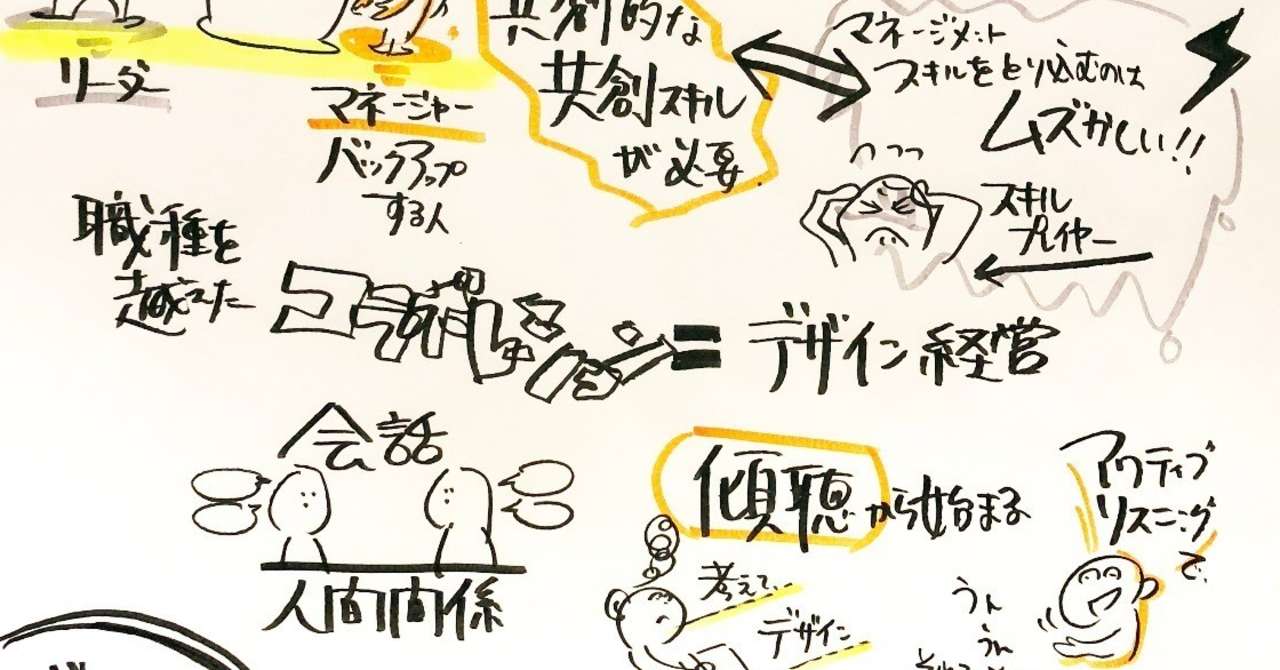 リーダー
マネージャー
バックアップ
する人
共創的な
共創スキル
が必要
マネージメント
スキルをとり込むのは
ムズかしい!!
スキル
プレイヤー
職種を
越えた
コラボレーション=デザイン経営
会話
人間関係
傾聴から始まる
アクティブ
リスニング
で
考えて
デザイン
うん
うん